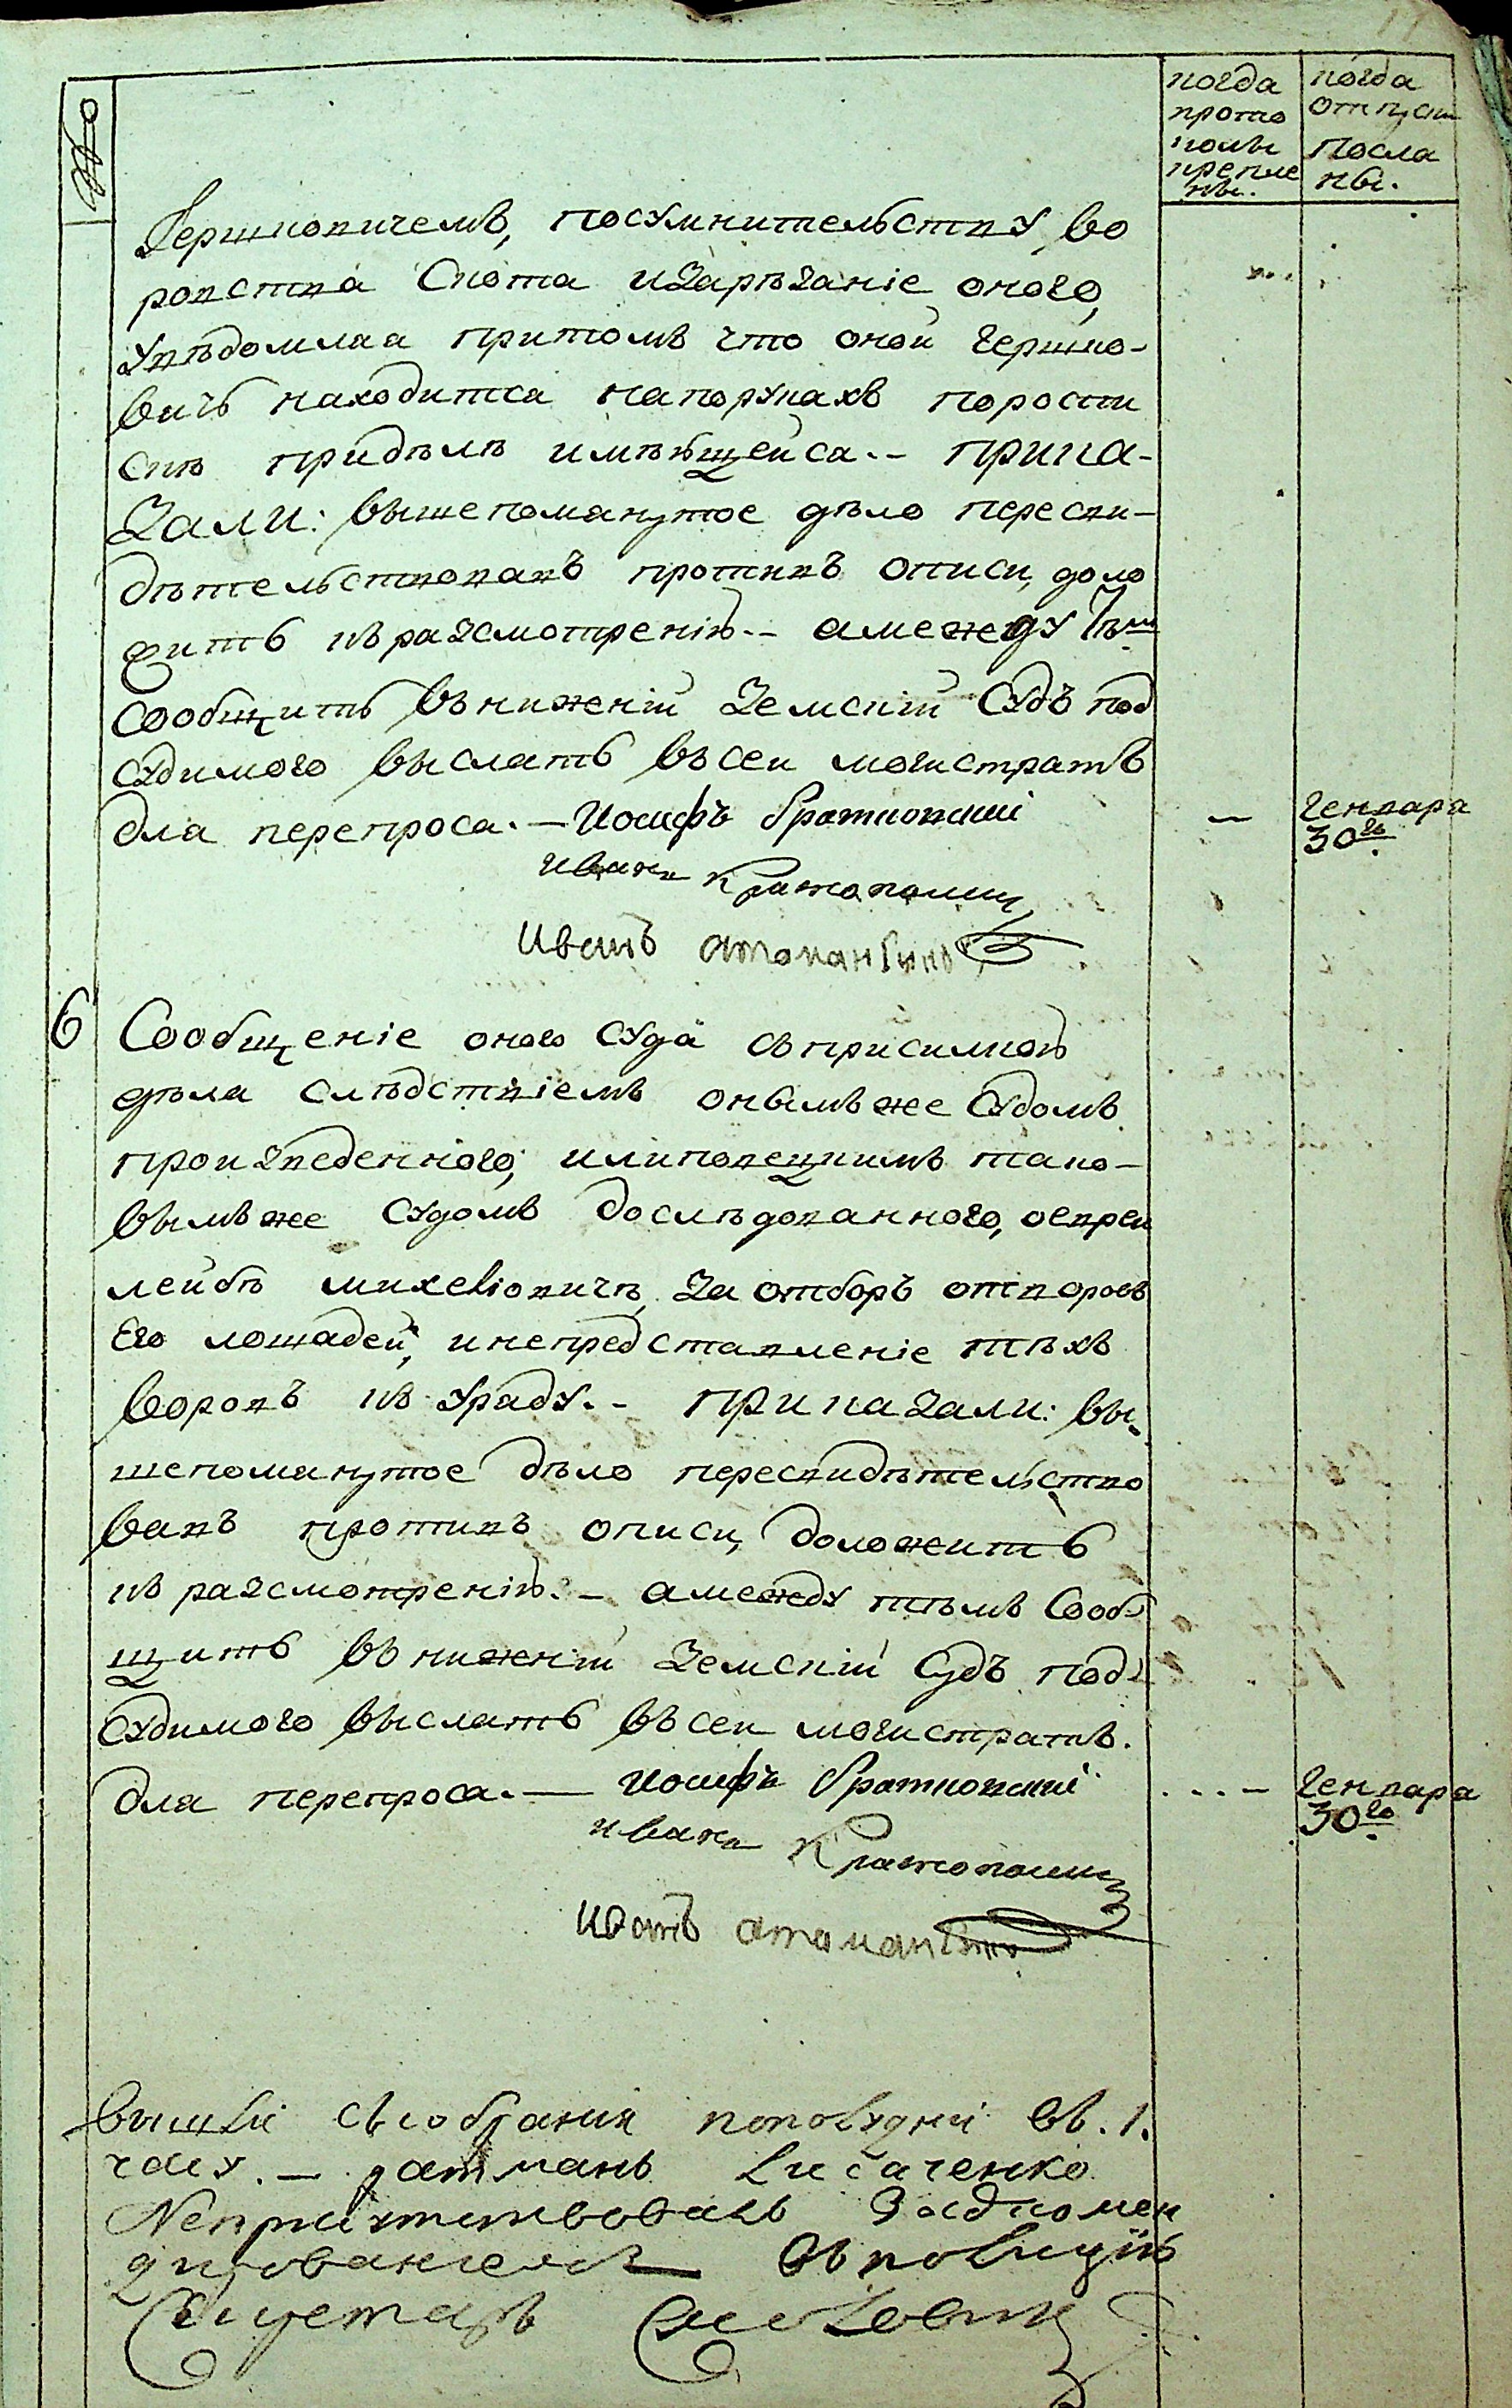 №
когда
прото
колы
крепле
ны.
когда
отпуск
посла
ны.
Гершковичемъ, посумнительству во
ровства скота изарѣзаніе оного,
увѣдомляя притомъ что оной гершко-
вичъ находится напорукахъ порости
скѣ придѣлѣ имѣющейся.- прика-
зали: вышепомянутое дѣло пересви-
дѣтельствовавъ противъ описи, доло
жить къразсмотренію.- амежду тѣм
сообщить внижній земскій судъ под
судимого выслать всей могистратъ
для перепроса.- Иосифъ братковскій
иванъ
Иванъ
— генваря
30го
6 Сообщеніе оного суда съприсилкою
дѣла слѣдствіемъ онымъже судомъ
произведенного, илиповецкимъ тако-
вымъже судомъ дослѣдованного, оевреи
лейбѣ михеліовичѣ, за отборъ отворовъ
Его лошадей, инепредставленіе тѣхъ
воровъ къ уряду.- приказали: вы-
шепомянутое дѣло пересвидѣтельство
вавъ противъ описи, доложить
къ разсмотренію.- амежду тѣмъ сооб-
щить внижній земскій судъ под-
судимого выслать всей могистратъ.
для перепроса.— Иосифъ братковскій
иванъ
Иванъ
- генваря
30го
вышли съсобрания пополудни въ. 1.
часу.— ратманъ Лисаченко
Неприсутствовалъ Заоткомен
дированиемъ въ полицию
Секретарь